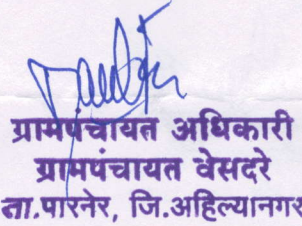 ग्रामपंचायत अधिकारी
ग्रामपंचायत वेसदरे
ता.पारनेर, जि.अहिल्यानगर